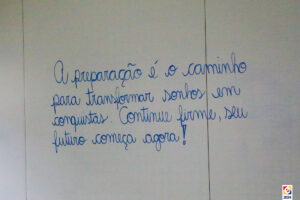 A preparação é o caminho
para transformar sonhos em
conquistas. Continue firme, seu
futuro começa agora!